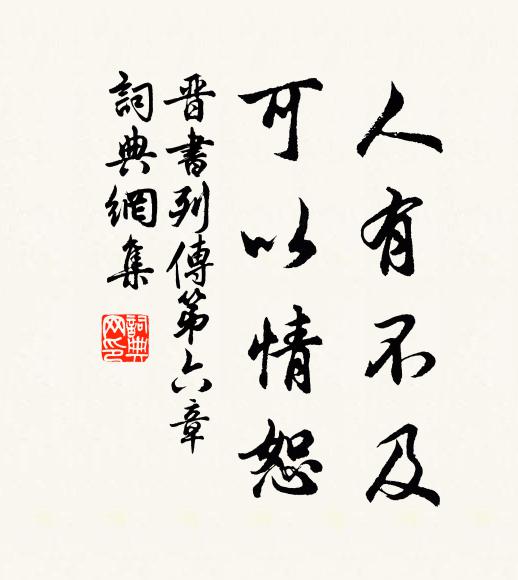 人有不及
可以情恕
晋書列傳第六章
詞典網集
詞典
网印